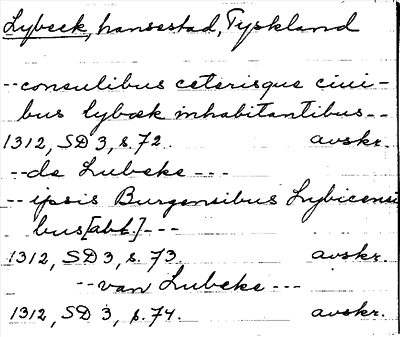 Lybeck, hansestad, Tyskland
-- consulibus ceterisque ciui-
bus lybæk inhabitantibus --
1312, SD 3, s. 72. avskr.
-- de Lubeke ---
-- ipsis Burgensibus Lybicensi
bus [abl.] ---
1312, SD 3, s. 73. avskr.
-- van Lubeke ---
1312, SD 3, s. 74. avskr.